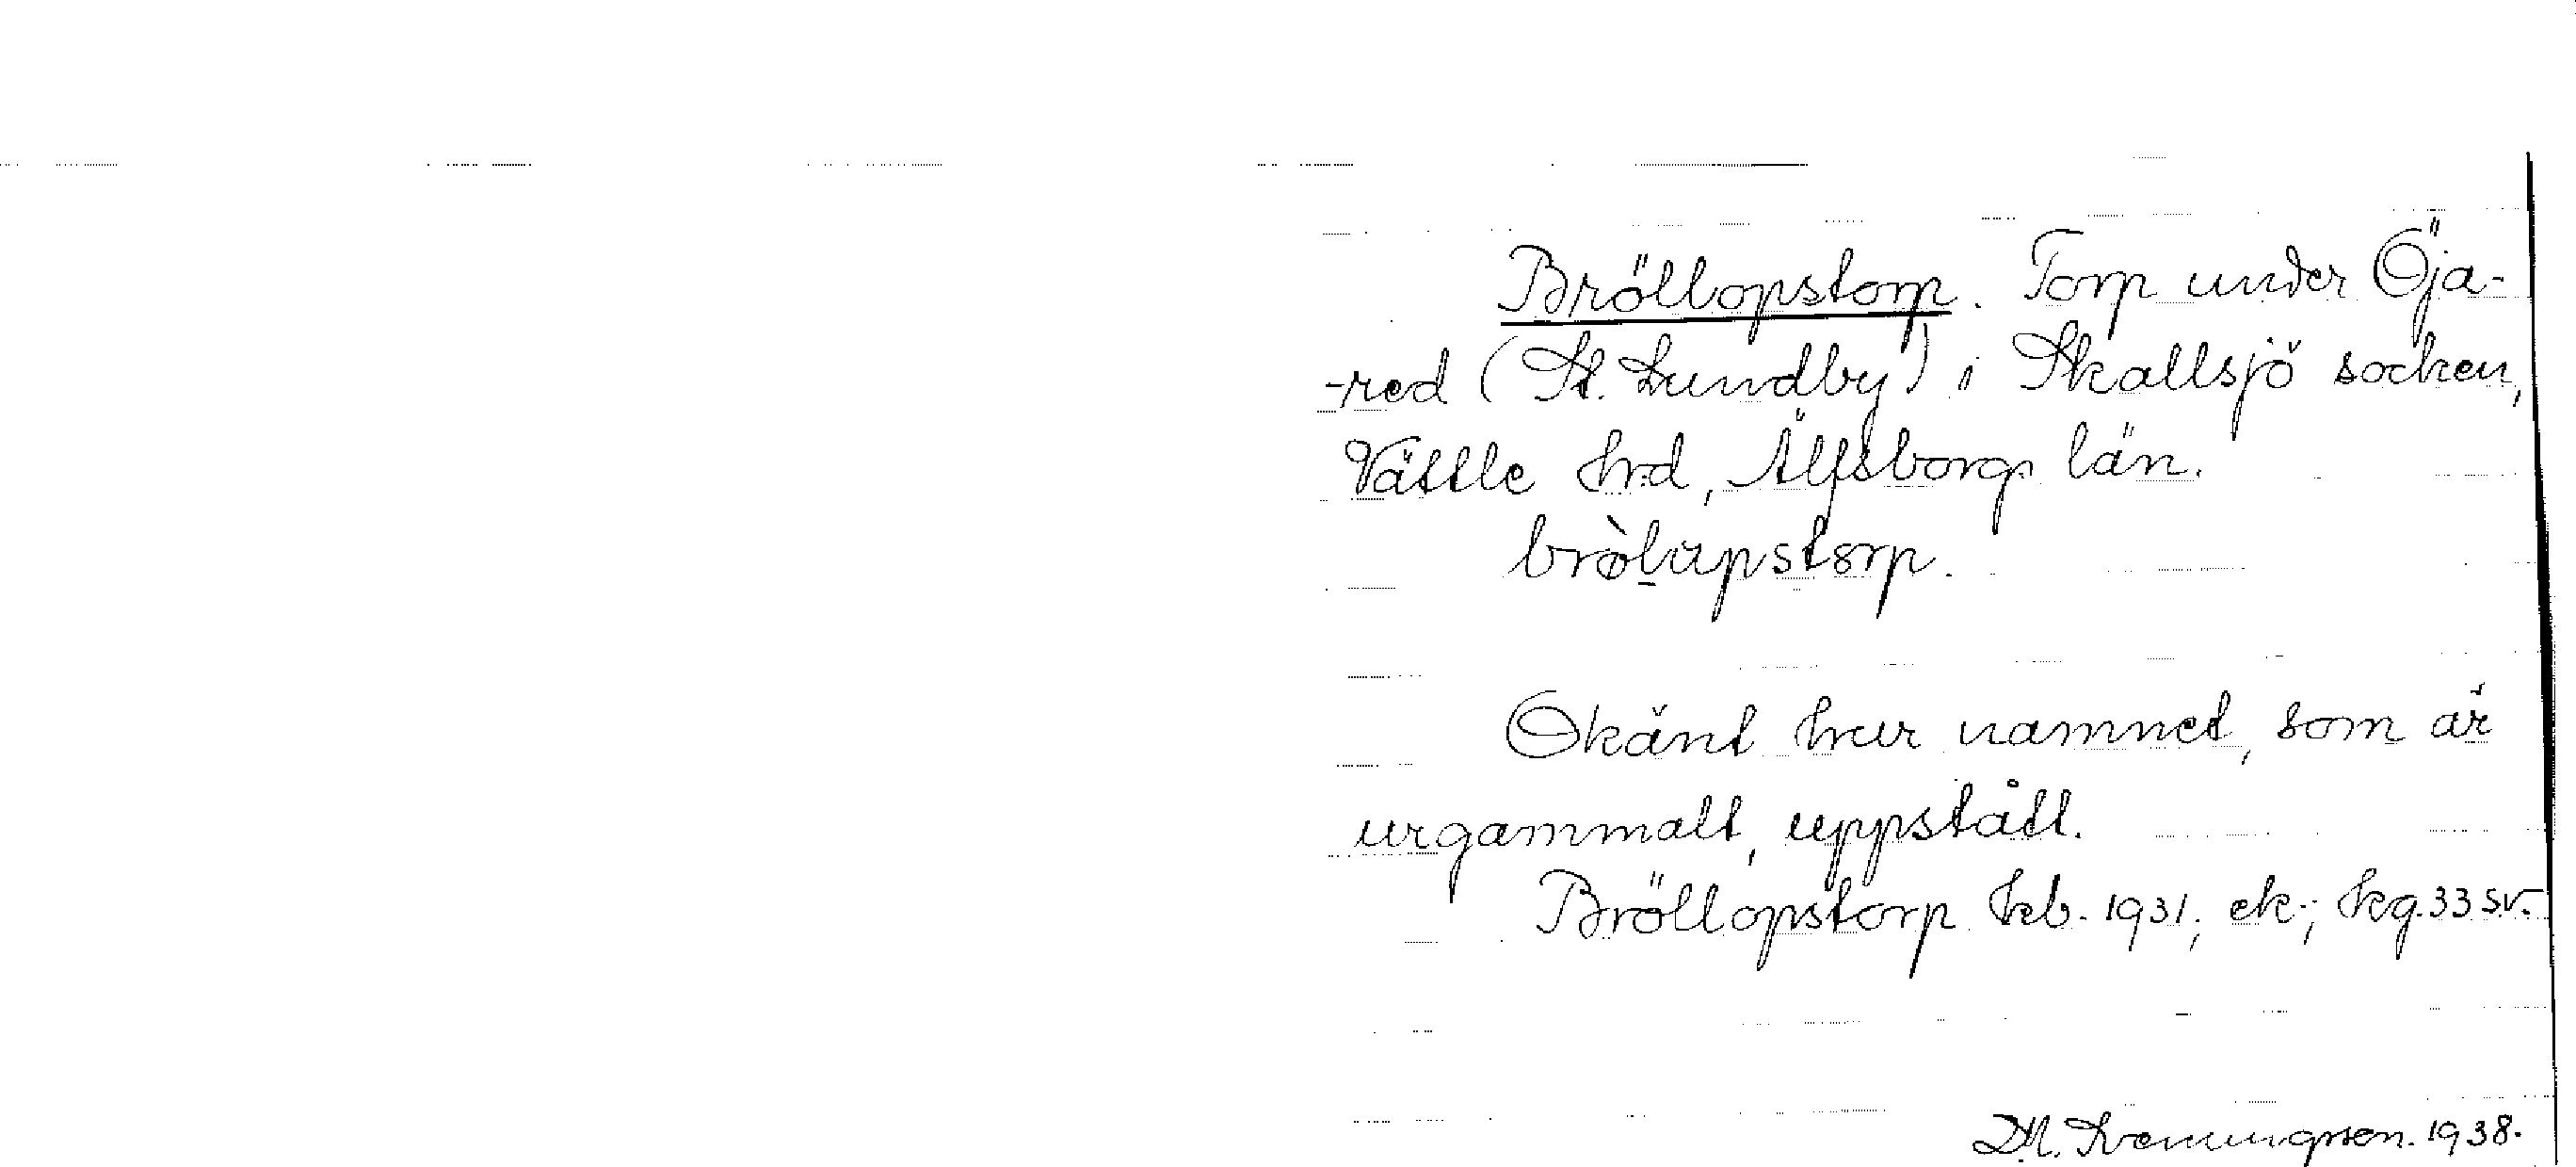 Bröllopstorp. Torp under Öja-
-red (St. Lundby) i Skallsjö socken,
Vättle hrd, Älfsborgs län.
bròlupstorp.
Okänt hur namnet, som är
urgammalt, uppstått.
Bröllopstorp kb. 1931; ek.; kg. 33 sv.
D.M. Svenningsson. 1938.